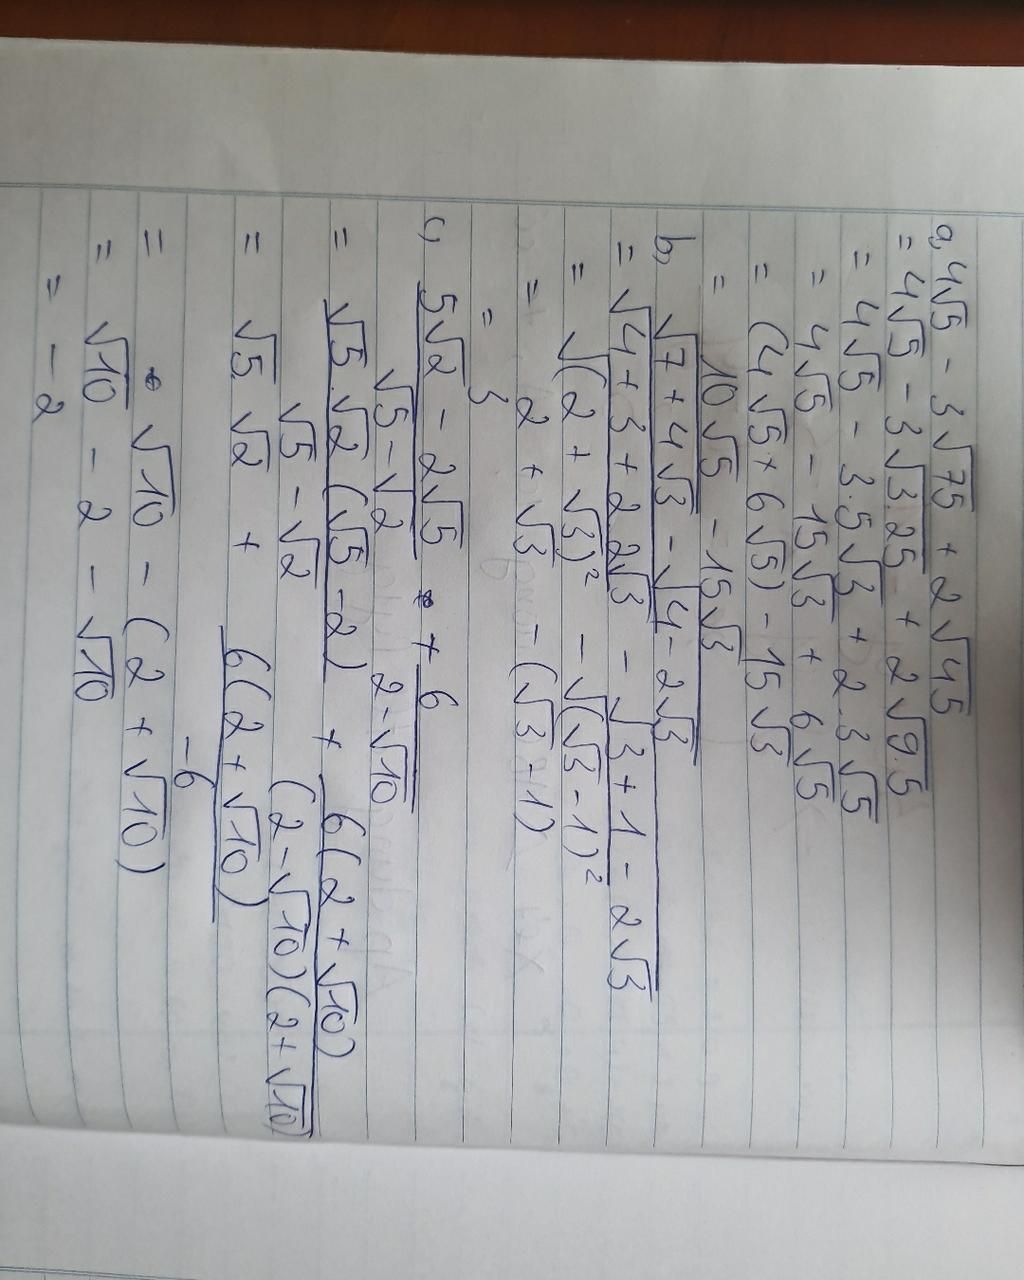 a, 4√5 - 3√75 + 2√45
= 4√5 - 3√3.25 + 2√9.5
= 4√5 - 3.5√3 + 2.3√5
= 4√5 - 15√3 + 6√5
= (4√5 + 6√5) - 15√3
= 10√5 - 15√3
b, √7 + 4√3 - √4 - 2√3
= √4 + 3 + 2.2√3 - √3 + 1 - 2√3
= √(2 + √3)² - √(√3 - 1)²
= 2 + √3 - (√3 - 1)
= 3
c, 5√2 - 2√5 + 6
√5 - √2 2 - √10
= √5.√2 (√5 - 2) + 6(2 + √10)
√5 - √2 (2 - √10)(2 + √10)
= √5.√2 + 6(2 + √10)
-6
= √10 - (2 + √10)
= √10 - 2 - √10
= -2